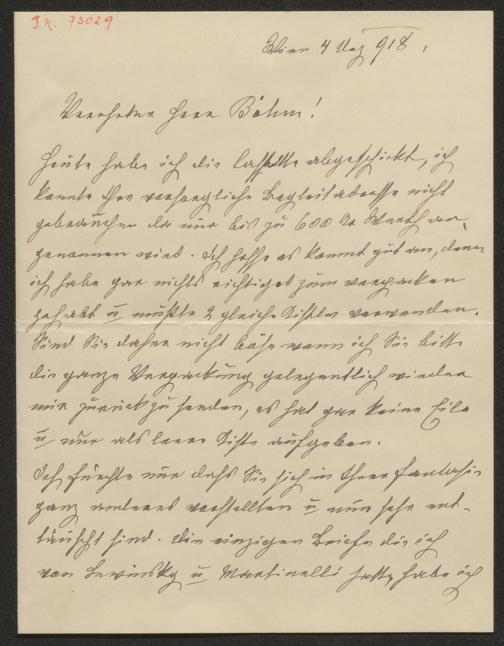 J.N. 73029
Wien 4 Dez 918.
Verehrter Herr Böhm!
Heute habe ich die Cassette abgeschickt, ich
konnte Ihre vorsorgliche Begleitadresse nicht
gebrauchen da nur bis zu 600 K Werth an-
genommen wird. Ich hoffe es kommt gut an, denn
ich habe gar nichts richtiges zum verpacken
gehabt u mußte 2 gleiche Kisteln verwenden.
Sind Sie daher nicht böse wenn ich Sie bitte
die ganze Verpackung gelegentlich wieder
mir zurück zu senden, es hat gar keine Eile
u nur als leere Kiste aufgeben.
Ich fürchte nur daß Sie sich in Ihrer Fantasie
ganz anderes vorstellten u nun sehr ent-
täuscht sind. Die einzigen Briefe die ich
von Lewinsky u Martinelli hatte, habe ich